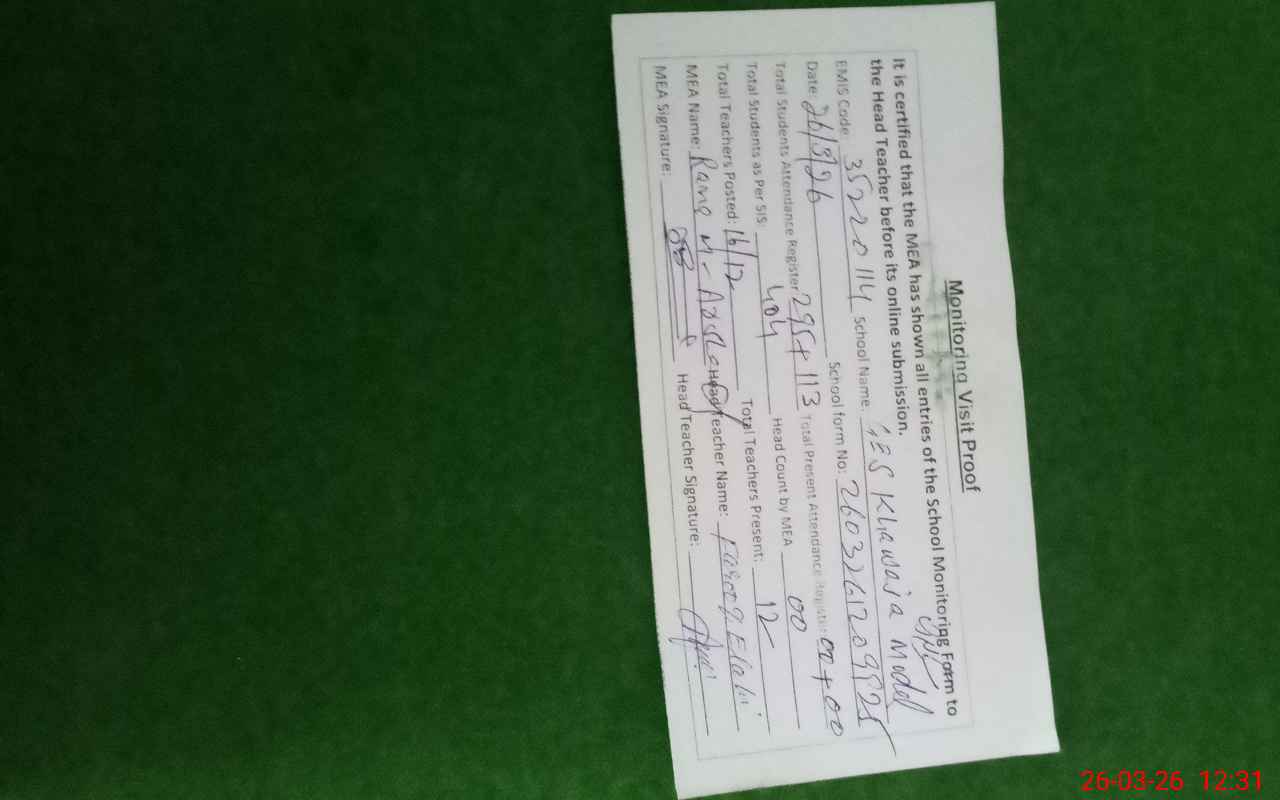 Monitoring Visit Proof
It is certified that the MEA has shown all entries of the School Monitoring Form to
the Head Teacher before its online submission.
EMIS Code: 35220114 School Name: GES Khawaja Model
Date: 26/3/26 School form No:
Total Students Attendance Register 295+113 Total Present Attendance Register 00+00
Total Students as Per SIS: 404 Head Count by MEA 00
Total Teachers Posted: 16/12 Total Teachers Present: 12
MEA Name: Rana M. Head Teacher Name:
MEA Signature: Head Teacher Signature:
26-03-26 12:31